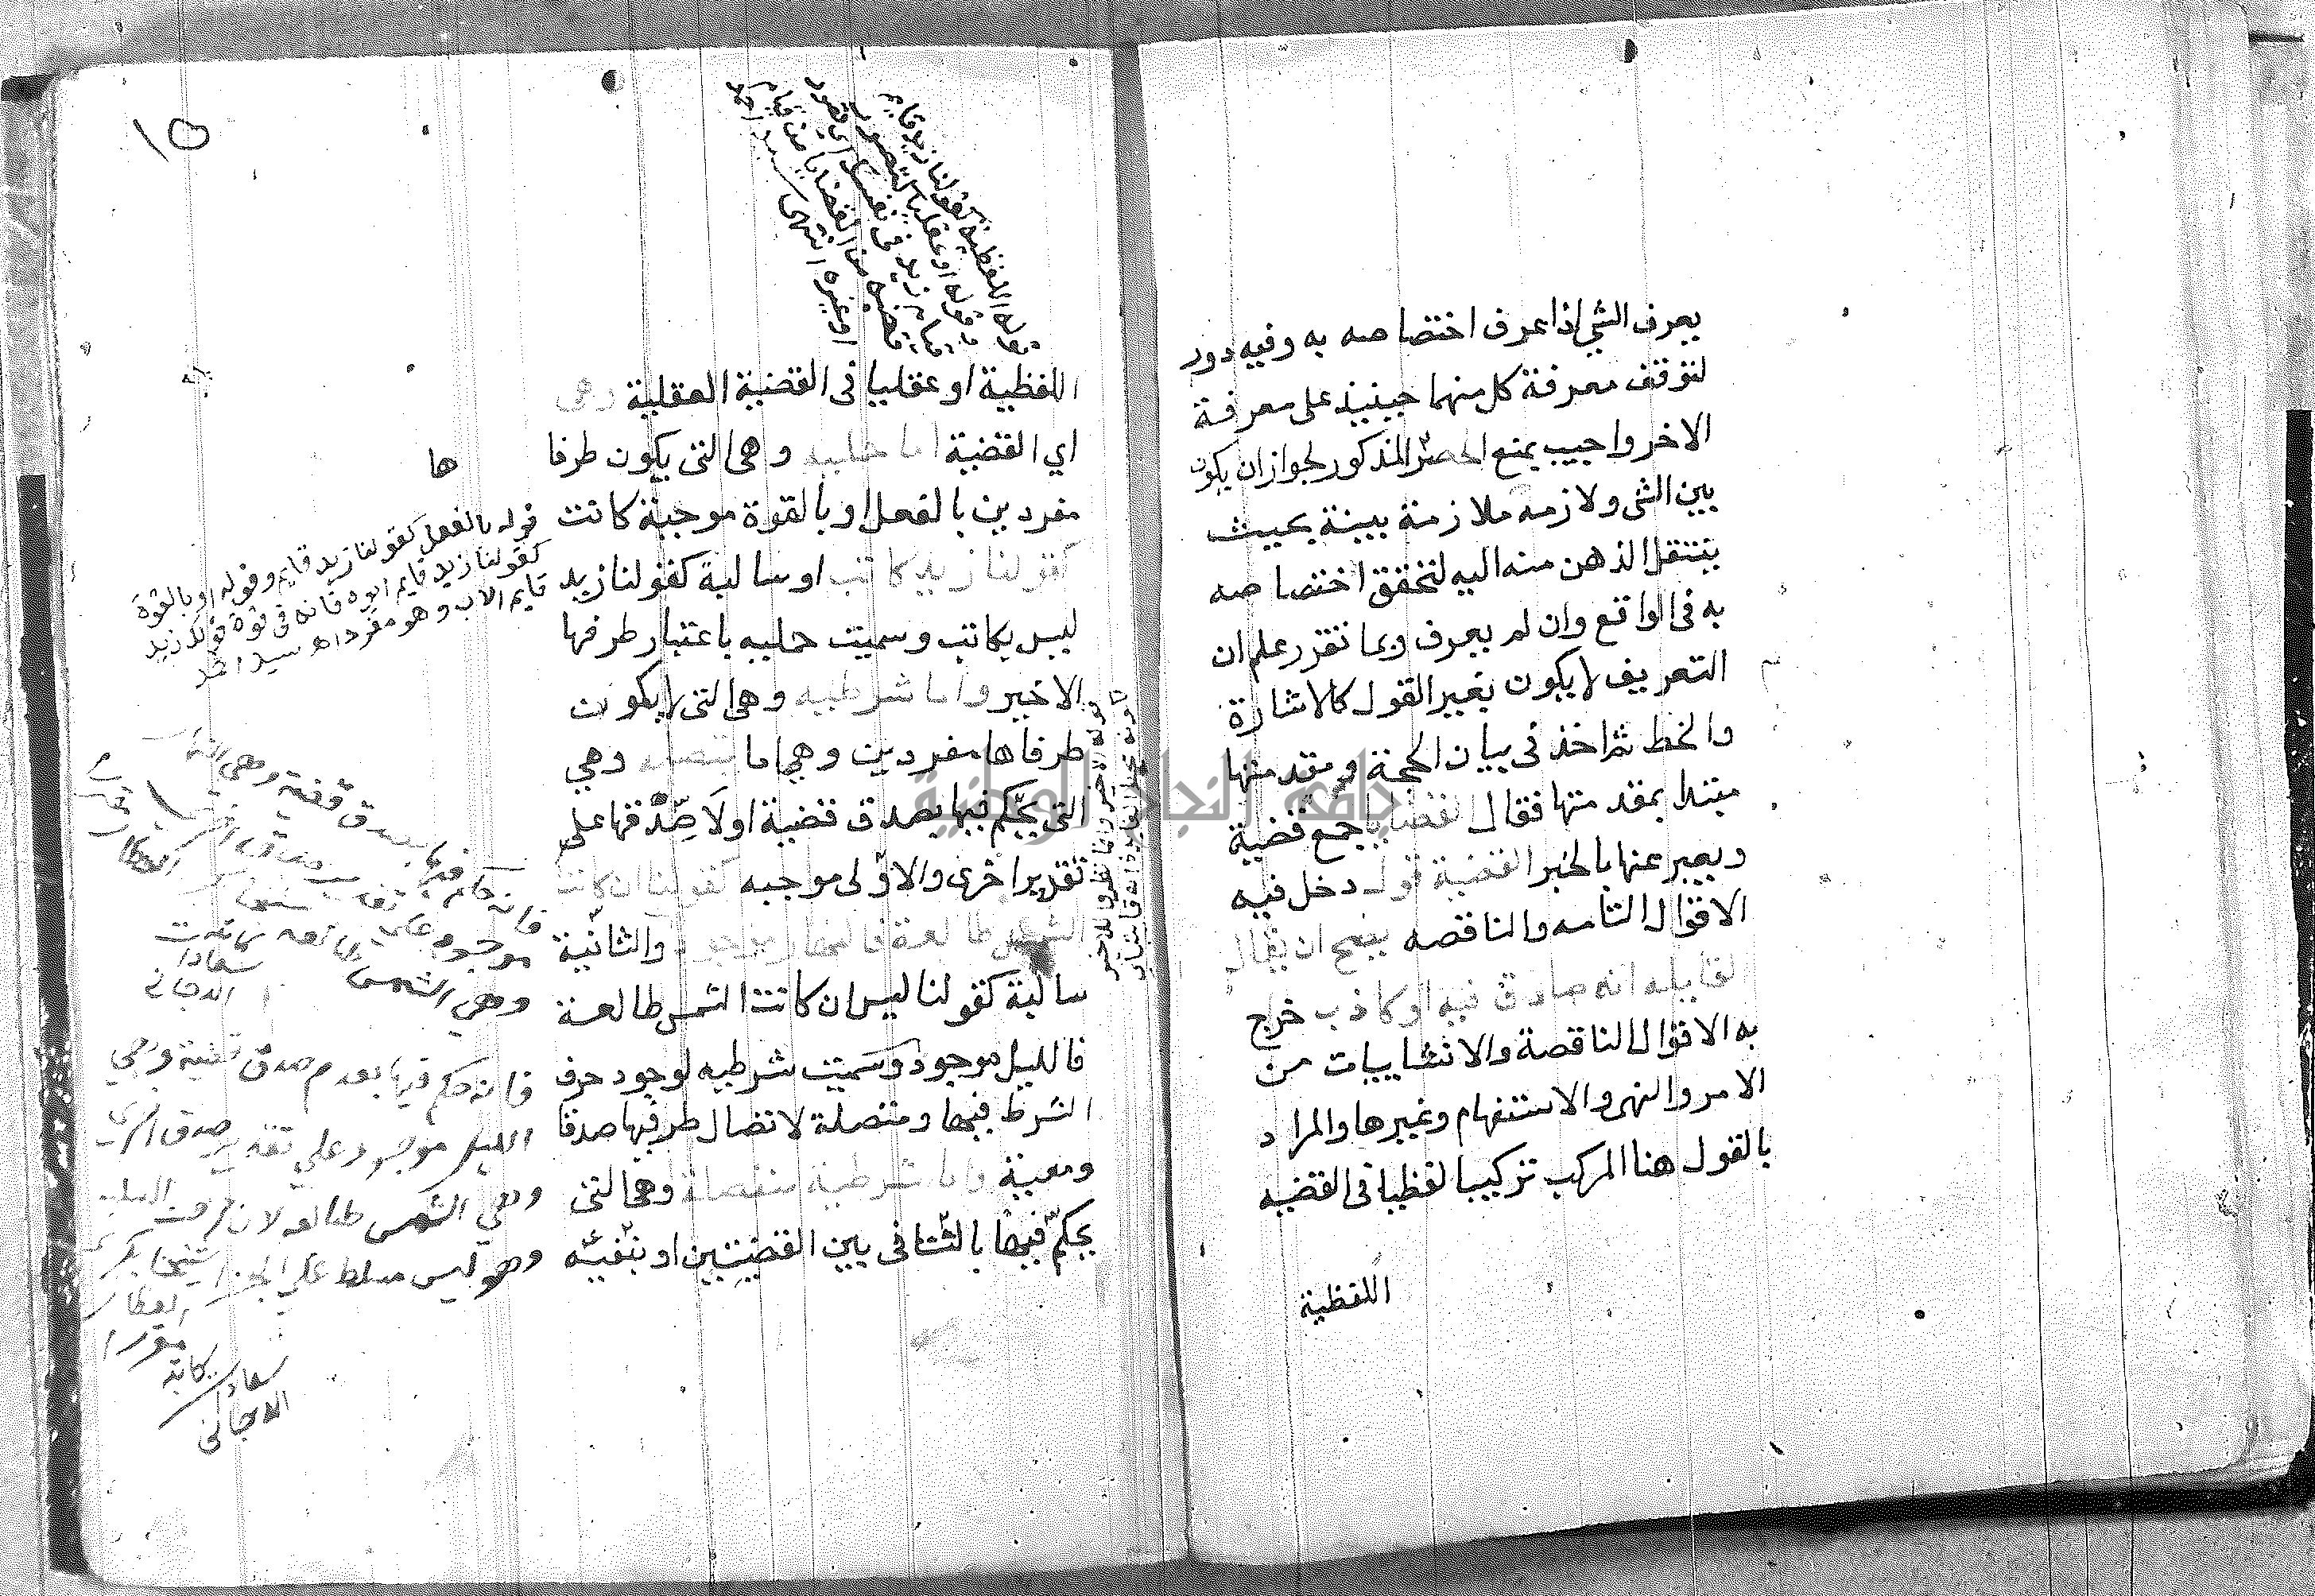 يعرف الشي اذا عرف اختصاصه به وفيه دور
لتوقف معرفة كل منهما حينيذ على معرفة
الاخر واجيب بمنع الحصر المذكور لجواز ان يكون
بين الشي ولازمه ملازمة بينة بحيث
ينتقل الذهن منه اليه لتحقق اختصاصه
به فى الواقع وان لم يعرف وبما تقرر علم ان
التعريف لا يكون بغير القول كالاشارة
والخط ثم اخذ فى بيان الحجة ومقدمتها
مبتدا بمقدمتها فقال القضايا جمع قضية
ويعبر عنها بالخبر القضية قول دخل فيه
الاقوال التامه والناقصه يصح ان يقال
لقايله انه صادق فيه او كاذب خرج
به الاقوال الناقصة والانشاييات من
الامر والنهى والاستفهام وغيرها والمراد
بالقول هنا المركب تركيبا لفظيا فى القضيه
اللفظية
١٥
قوله اللفظية كقولنا زيد قايم
وقوله او عقليا
او غيره انتهى سيد احمد
اللفظية او عقليا فى القضية العقلية وهى
اي القضية اما حمليه وهى التى يكون طرفا
ها
مفردين بالفعل او بالقوة موجبة كانت
كقولنا زيد كاتب او سالبة كقولنا زيد
ليس بكاتب وسميت حمليه باعتبار طرفها
الاخير واما شرطيه وهى التى لا يكون
طرفاها مفردين وهى اما متصله وهي
التى يحكم فيها بصدق قضية او لا صدقها على
تقدير اخرى والاولى موجبه كقولنا ان كانت
الشمس طالعة فالنهار موجود والثانية
سالبة كقولنا ليس ان كانت الشمس طالعة
فالليل موجود وسميت شرطيه لوجود حرف
الشرط فيها ومتصلة لاتصال طرفيها صدقا
ومعية واما شرطية منفصلة وهى التى
يحكم فيها بالتنافى بين القضيتين او بنفيه
قوله بالفعل كقولنا زيد قايم وقوله او بالقوة
كقولنا زيد قايم ابوه فانه فى قوة قولك زيد
قايم الاب وهو مفرد اه سيد احمد
سعادا
الدجاني
فانه حكم فيها بعدم صدق قضية وهي
الليل موجود على تقدير صدق اخرى
وهي الشمس طالعه لان حرف السلب
وهو ليس مسلط على الجزا شيخنا بكر
العطار
مقررا
بكابة
سعادا
الدجاني
جامعة النجاح الوطنية